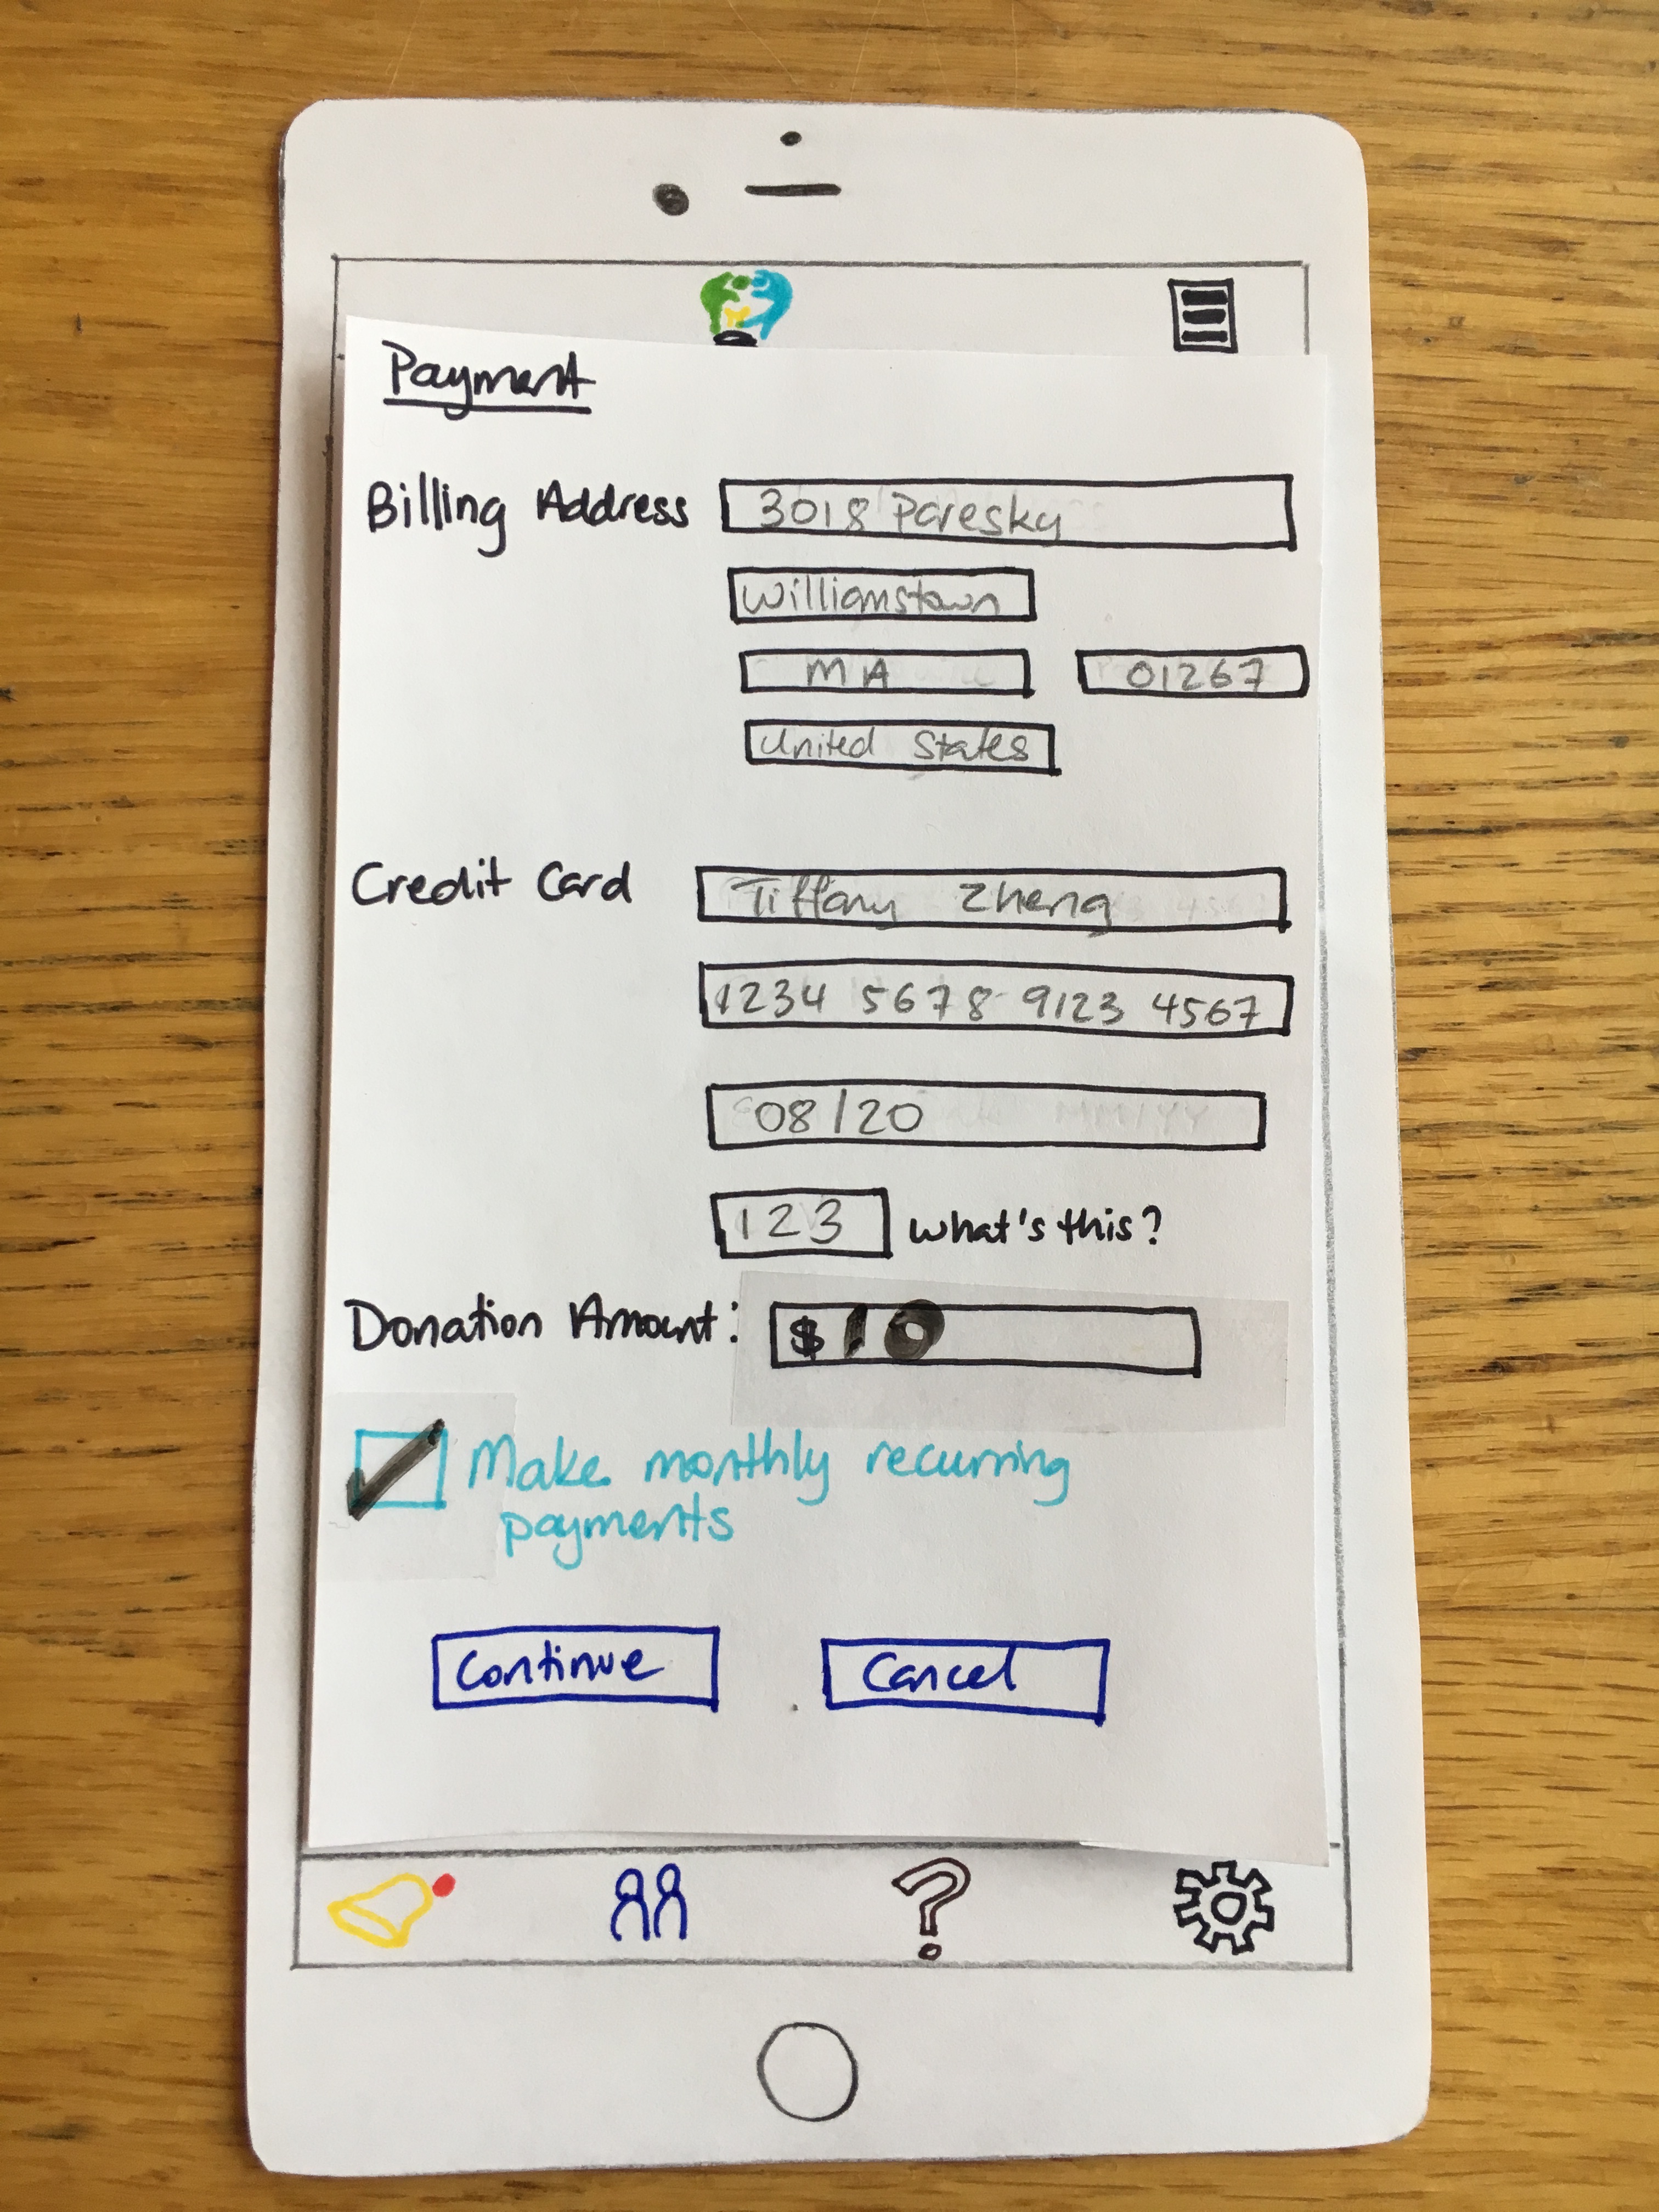 Payment
Billing Address 3018 Paresky
Williamstown
MA 01267
United States
Credit Card Tiffany Zheng
1234 5678 9123 4567
08/20
123 what's this?
Donation Amount: $10
Make monthly recurring
payments
Continue Cancel
?